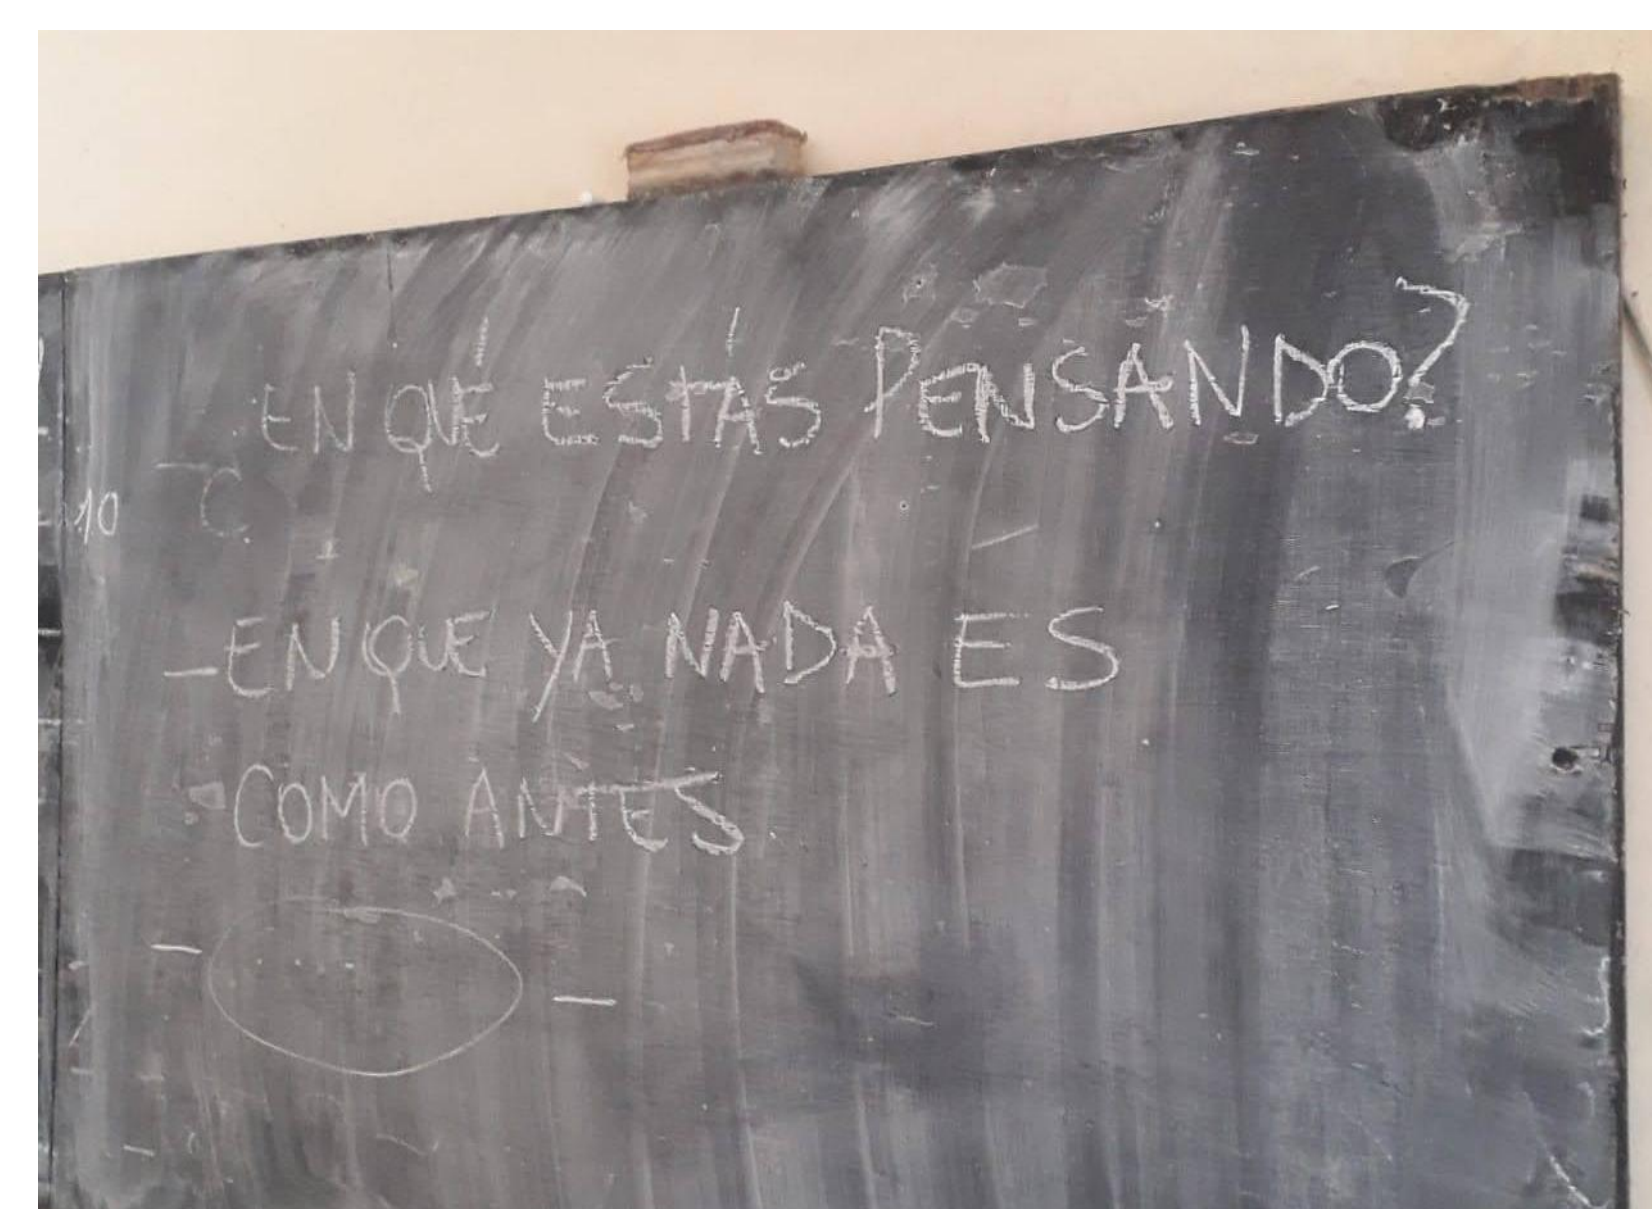 EN QUÉ ESTÁS PENSANDO?
10
- EN QUE YA NADA ES
COMO ANTES
- ... -